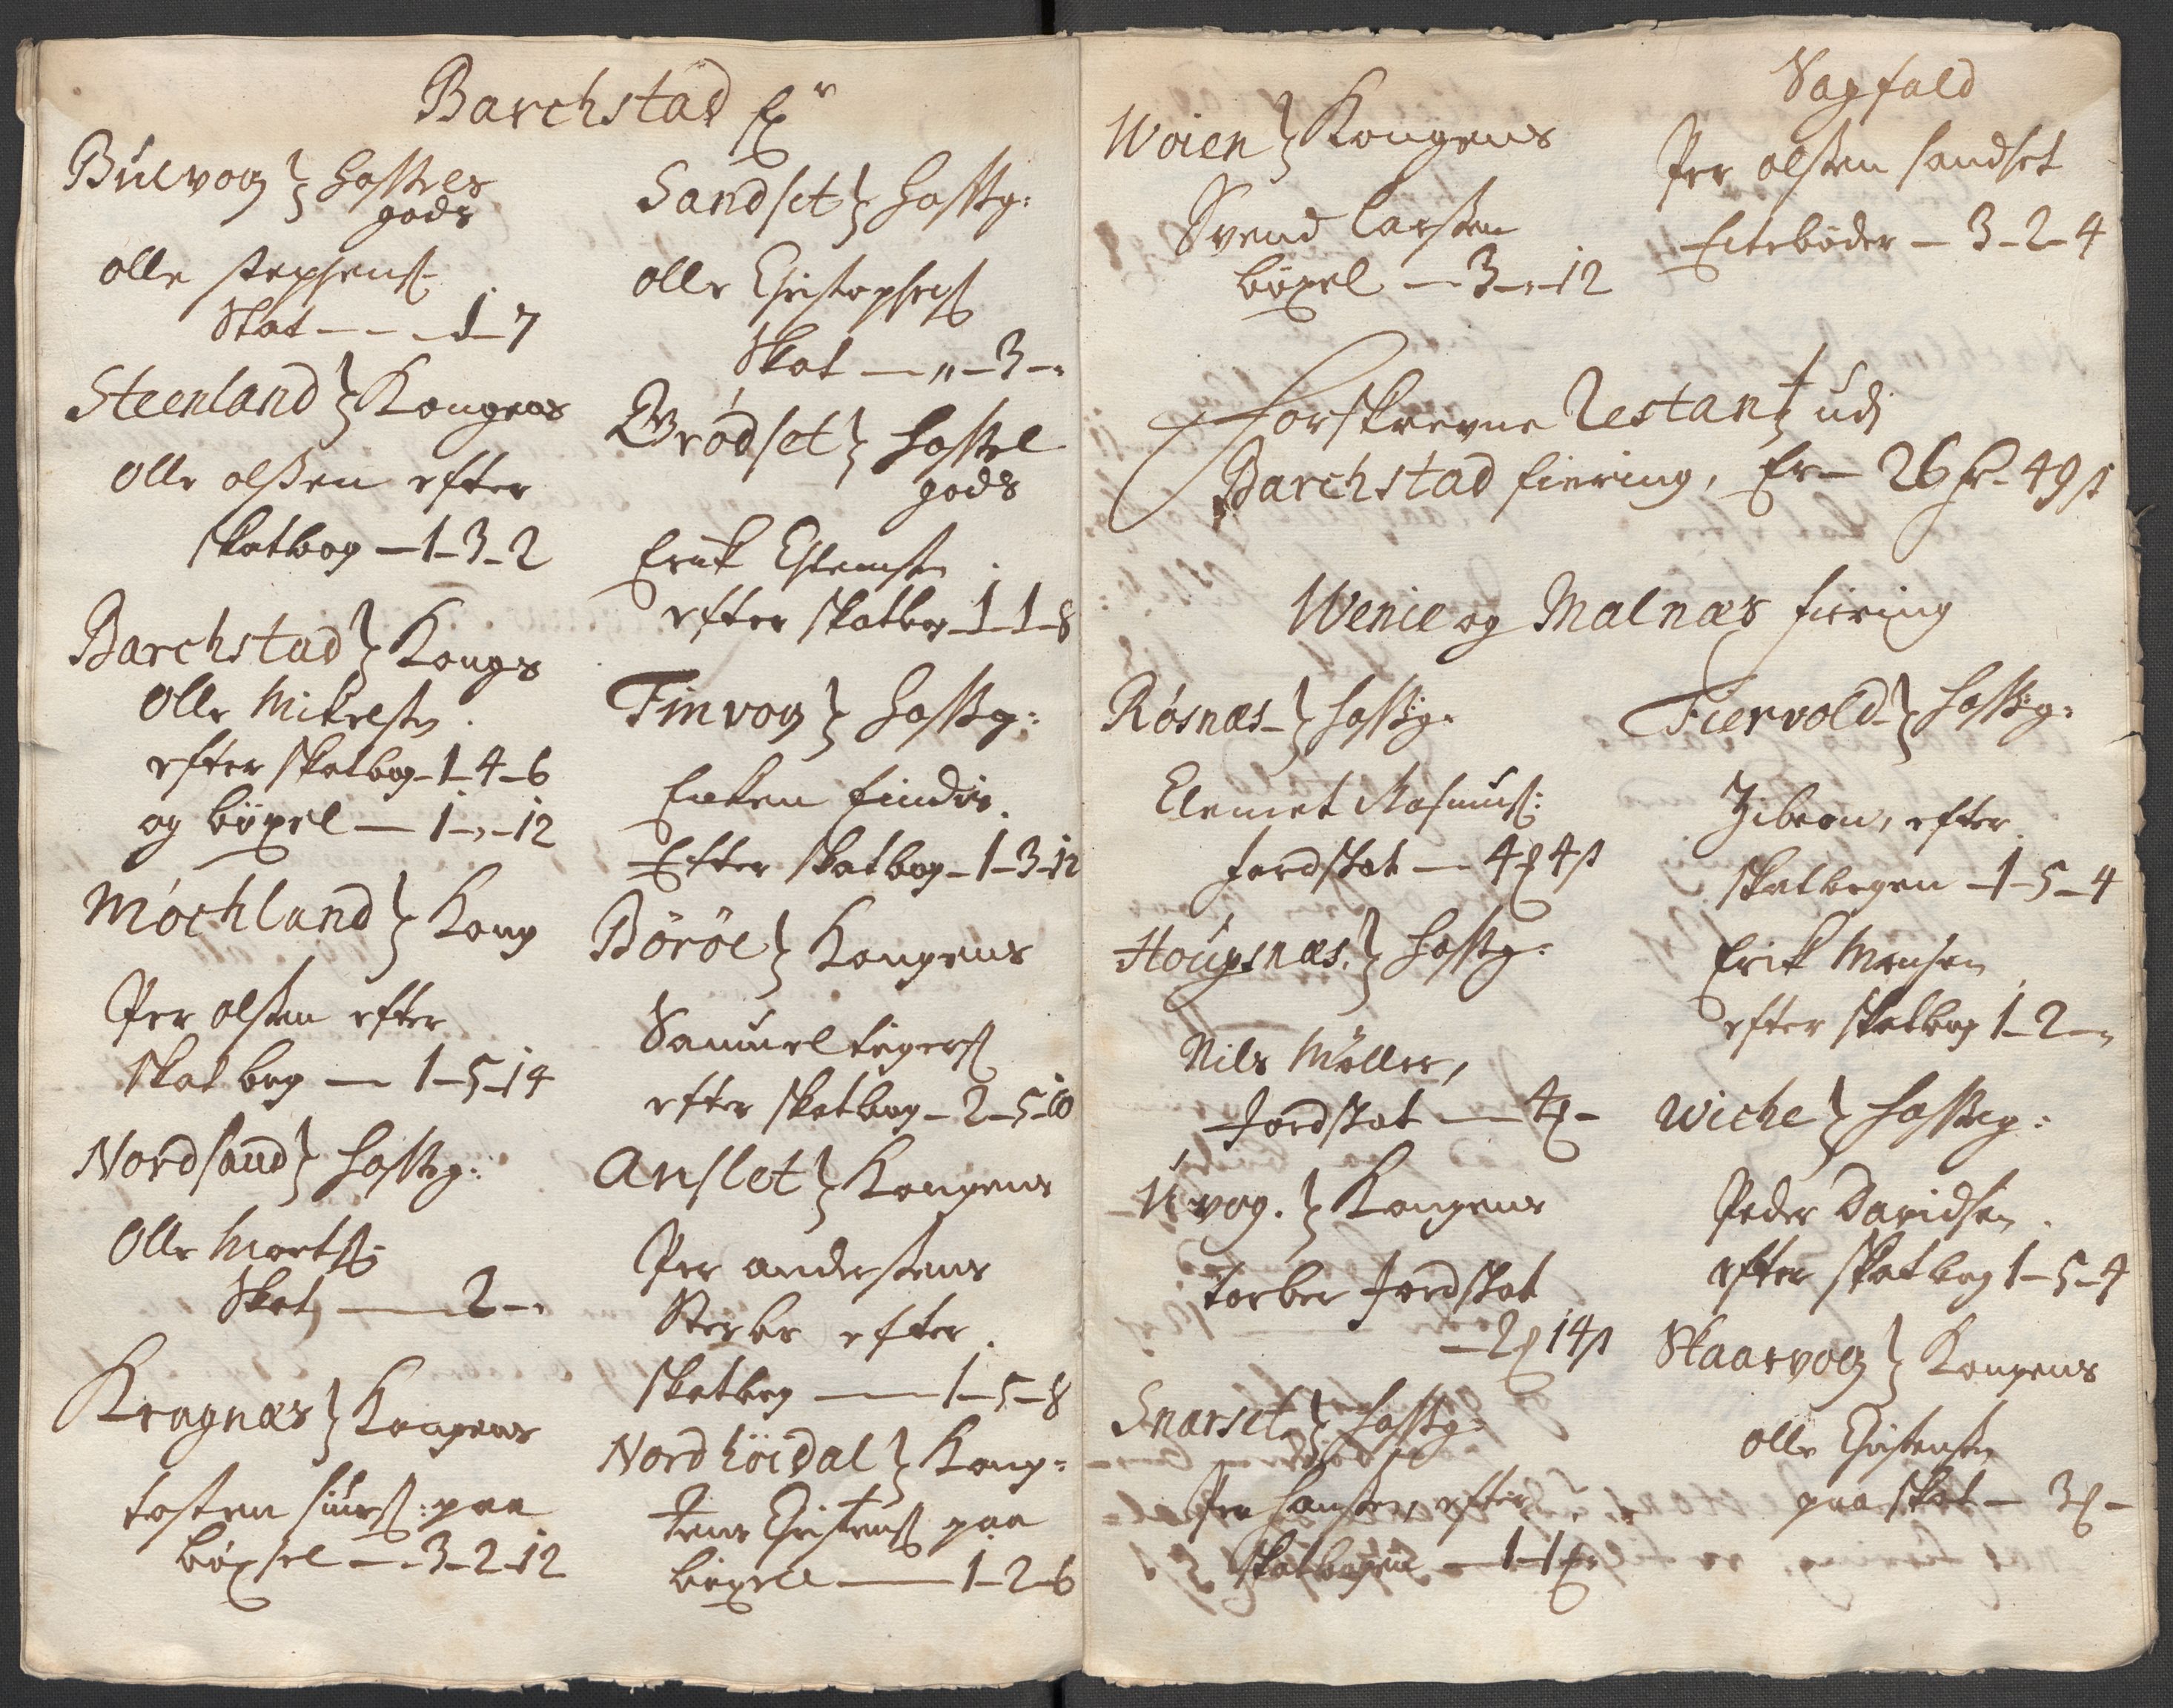 Barchstad fr
Bulvog } Hosstels
gods
Olle Stephens:
Skat - - - 1 - 7
Steenland } Kongens
Olle Olssen efter
skatbog - 1 - 3 - 2
Barchstad } Kongs
Olle Mikelss
efter skatbog - 1 - 4 - 6
og böxel - 1 - „ - 12
Möchland } Kong
Per Olssen efter
skatbog - 1 - 5 - 14
Nordsand } Hosstg:
Olle Mortss
Skat - 2 - „
Kragnæs } Kongens
Tosten Siurss: paa
böxsel - 3 - 2 - 12
Sandset } Hosstg:
Olle Christophers
Skat - „ - 3 - „
Brödset } Hosstel
gods
Erik
efter skatbog - 1 - 1 - 8
Finvog } Hosstg:
Enken Findis
Efter skatbog - 1 - 3 - 12
Böröe } Kongens
Samuel
efter skatbog - 2 - 5 - 10
Anslet } Kongens
Per Anderssens
Sterbo efter
skatbog - 1 - 5 - 8
Nordhöidal } Kong:
Jens Christens paa
böxel - 1 - 2 - 6
Woien } Kongens
Svend Larssen
böxel - 3 - „ - 12
Sagfald
Per Olssen Sandset
Eitebøder - 3 - 2 - 4
Forskrevne Restantz udj
Barchstad fiering, Er - 26 - 49 s
Wenie og Malnæs fiering
Rösnæs } Hosstg:
Clemet Rasmuss:
Jordskat - 4 4 s
Houpsnæs } Hosstg:
Nils Möller,
Jordskat - 4 -
Uvog. } Kongens
Torber Jordskat
- 2 14 s
Snarset } Hosstg:
Per Hanssen, efter
skatbogen - 1 - 1
Fiervold } Hosstg:
Gibron, efter
skatbogen - 1 - 5 - 4
Erik Monsen
efter skatbog 1 - 2 - „
Wiche } Hosstg:
Peder Davidsen
efter skatbog 1 - 5 - 4
Skaarvog } Kongens
Olle Christenss
paa skat - 3 -